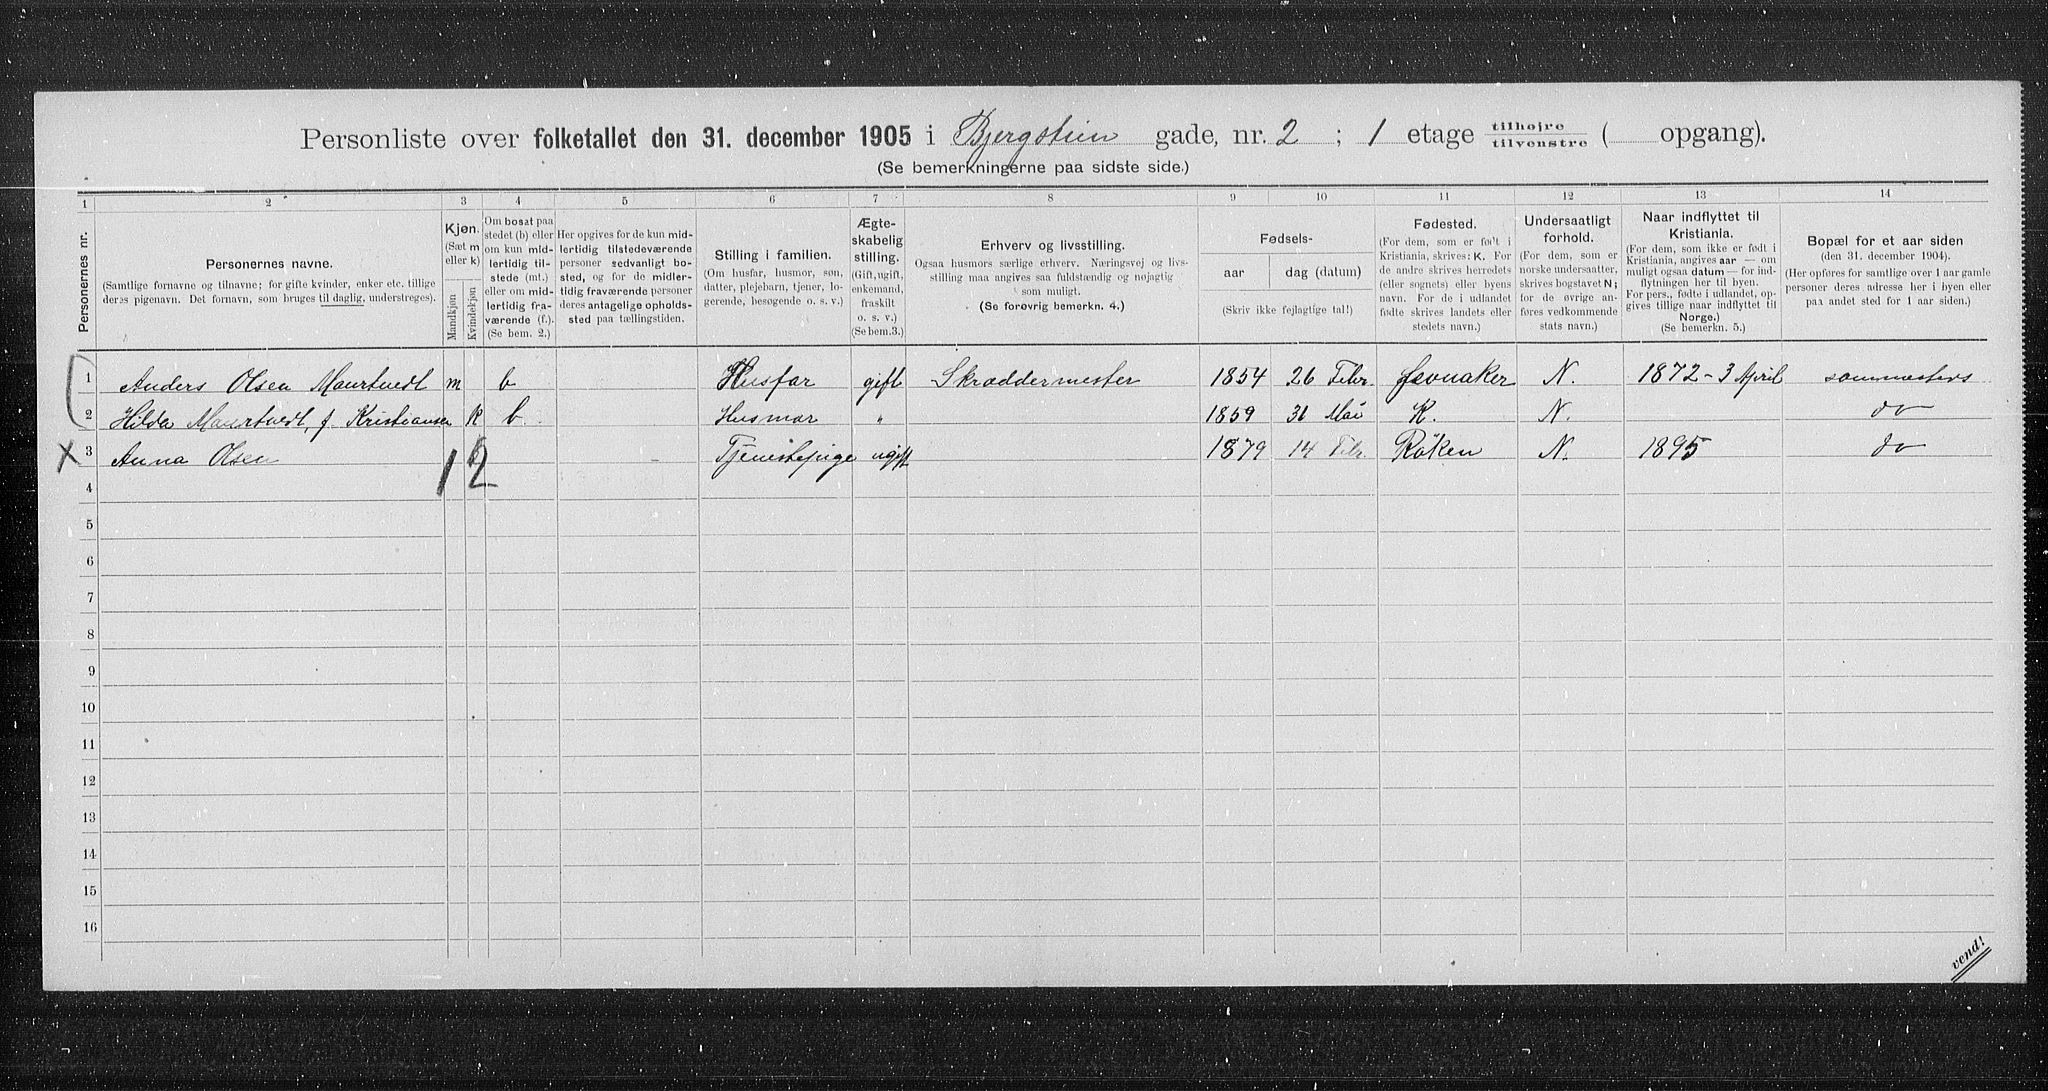 Personliste over folketallet den 31. december 1905 i Bjergstien gade, nr. 2 ; 1 etage tilhøjre tilvenstre ( opgang).
(Se bemerkningerne paa sidste side.)
1 2 3 4 5 6 7 8 9 10 11 12 13 14
Personernes nr.
Personernes navne.
(Samtlige fornavne og tilnavne; for gifte kvinder, enker etc. tillige
deres pigenavn. Det fornavn, som bruges til daglig, understreges).
Kjøn.
(Sæt m
eller k)
Mandkjøn
Kvindekjøn
Om bosat paa
stedet (b) eller
om kun mid-
lertidig til-
stede (mt.)
eller om mid-
lertidig fra-
værende (f.).
(Se bem. 2.)
Her opgives for de kun mid-
lertidig tilstedeværende
personer sedvanligt bo-
sted, og for de midler-
tidig fraværende personer
deres antagelige opholds-
sted paa tællingstiden.
Stilling i familien.
(Om husfar, husmor, søn,
datter, plejebarn, tjener, lo-
gerende, besøgende o. s. v.)
Ægte-
skabelig
stilling.
(Gift, ugift,
enkemand,
fraskilt
o. s. v.)
(Se bem.3.)
Erhverv og livsstilling.
Ogsaa husmors særlige erhverv. Næringsvej og livs-
stilling maa angives saa fuldstændig og nøjagtig
som muligt.
(Se forøvrig bemerkn. 4.)
Fødsels-
aar
dag (datum)
(Skriv ikke fejlagtige tal!)
Fødested.
(For dem, som er født i
Kristiania, skrives: K. For
de andre skrives herredets
(eller sognets) eller byens
navn. For de i udlandet
fødte skrives landets eller
stedets navn.)
Undersaatligt
forhold.
(For dem, som er
norske undersaatter,
skrives bogstavet N;
for de øvrige an-
føres vedkommende
stats navn.)
Naar indflyttet til
Kristiania.
(For dem, som ikke er født i
Kristiania, angives aar — om
muligt ogsaa datum — for ind-
flytningen her til byen.
For pers., fødte i udlandet, op-
gives tillige naar indflyttet til
Norge.)
(Se bemerkn. 5.)
Bopæl for et aar siden
(den 31. december 1904).
(Her opføres for samtlige over 1 aar gamle
personer deres adresse her i byen eller
paa andet sted for 1 aar siden.)
1 Anders Olsen Maurtvedt m b Husfar gift Skræddermester 1854 26 Febr. Jevnaker N. 1872 - 3 April sammesteds
2 Hilda Maurtvedt, f. Kristiansen k b. Husmor " 1859 31 Mai K. N. do
x 3 Anna Olsen Tjenestepige ugift 1879 14 Febr. Røken N. 1895 do
1 2
4
5
6
7
8
9
10
11
12
13
14
15
16
vend!